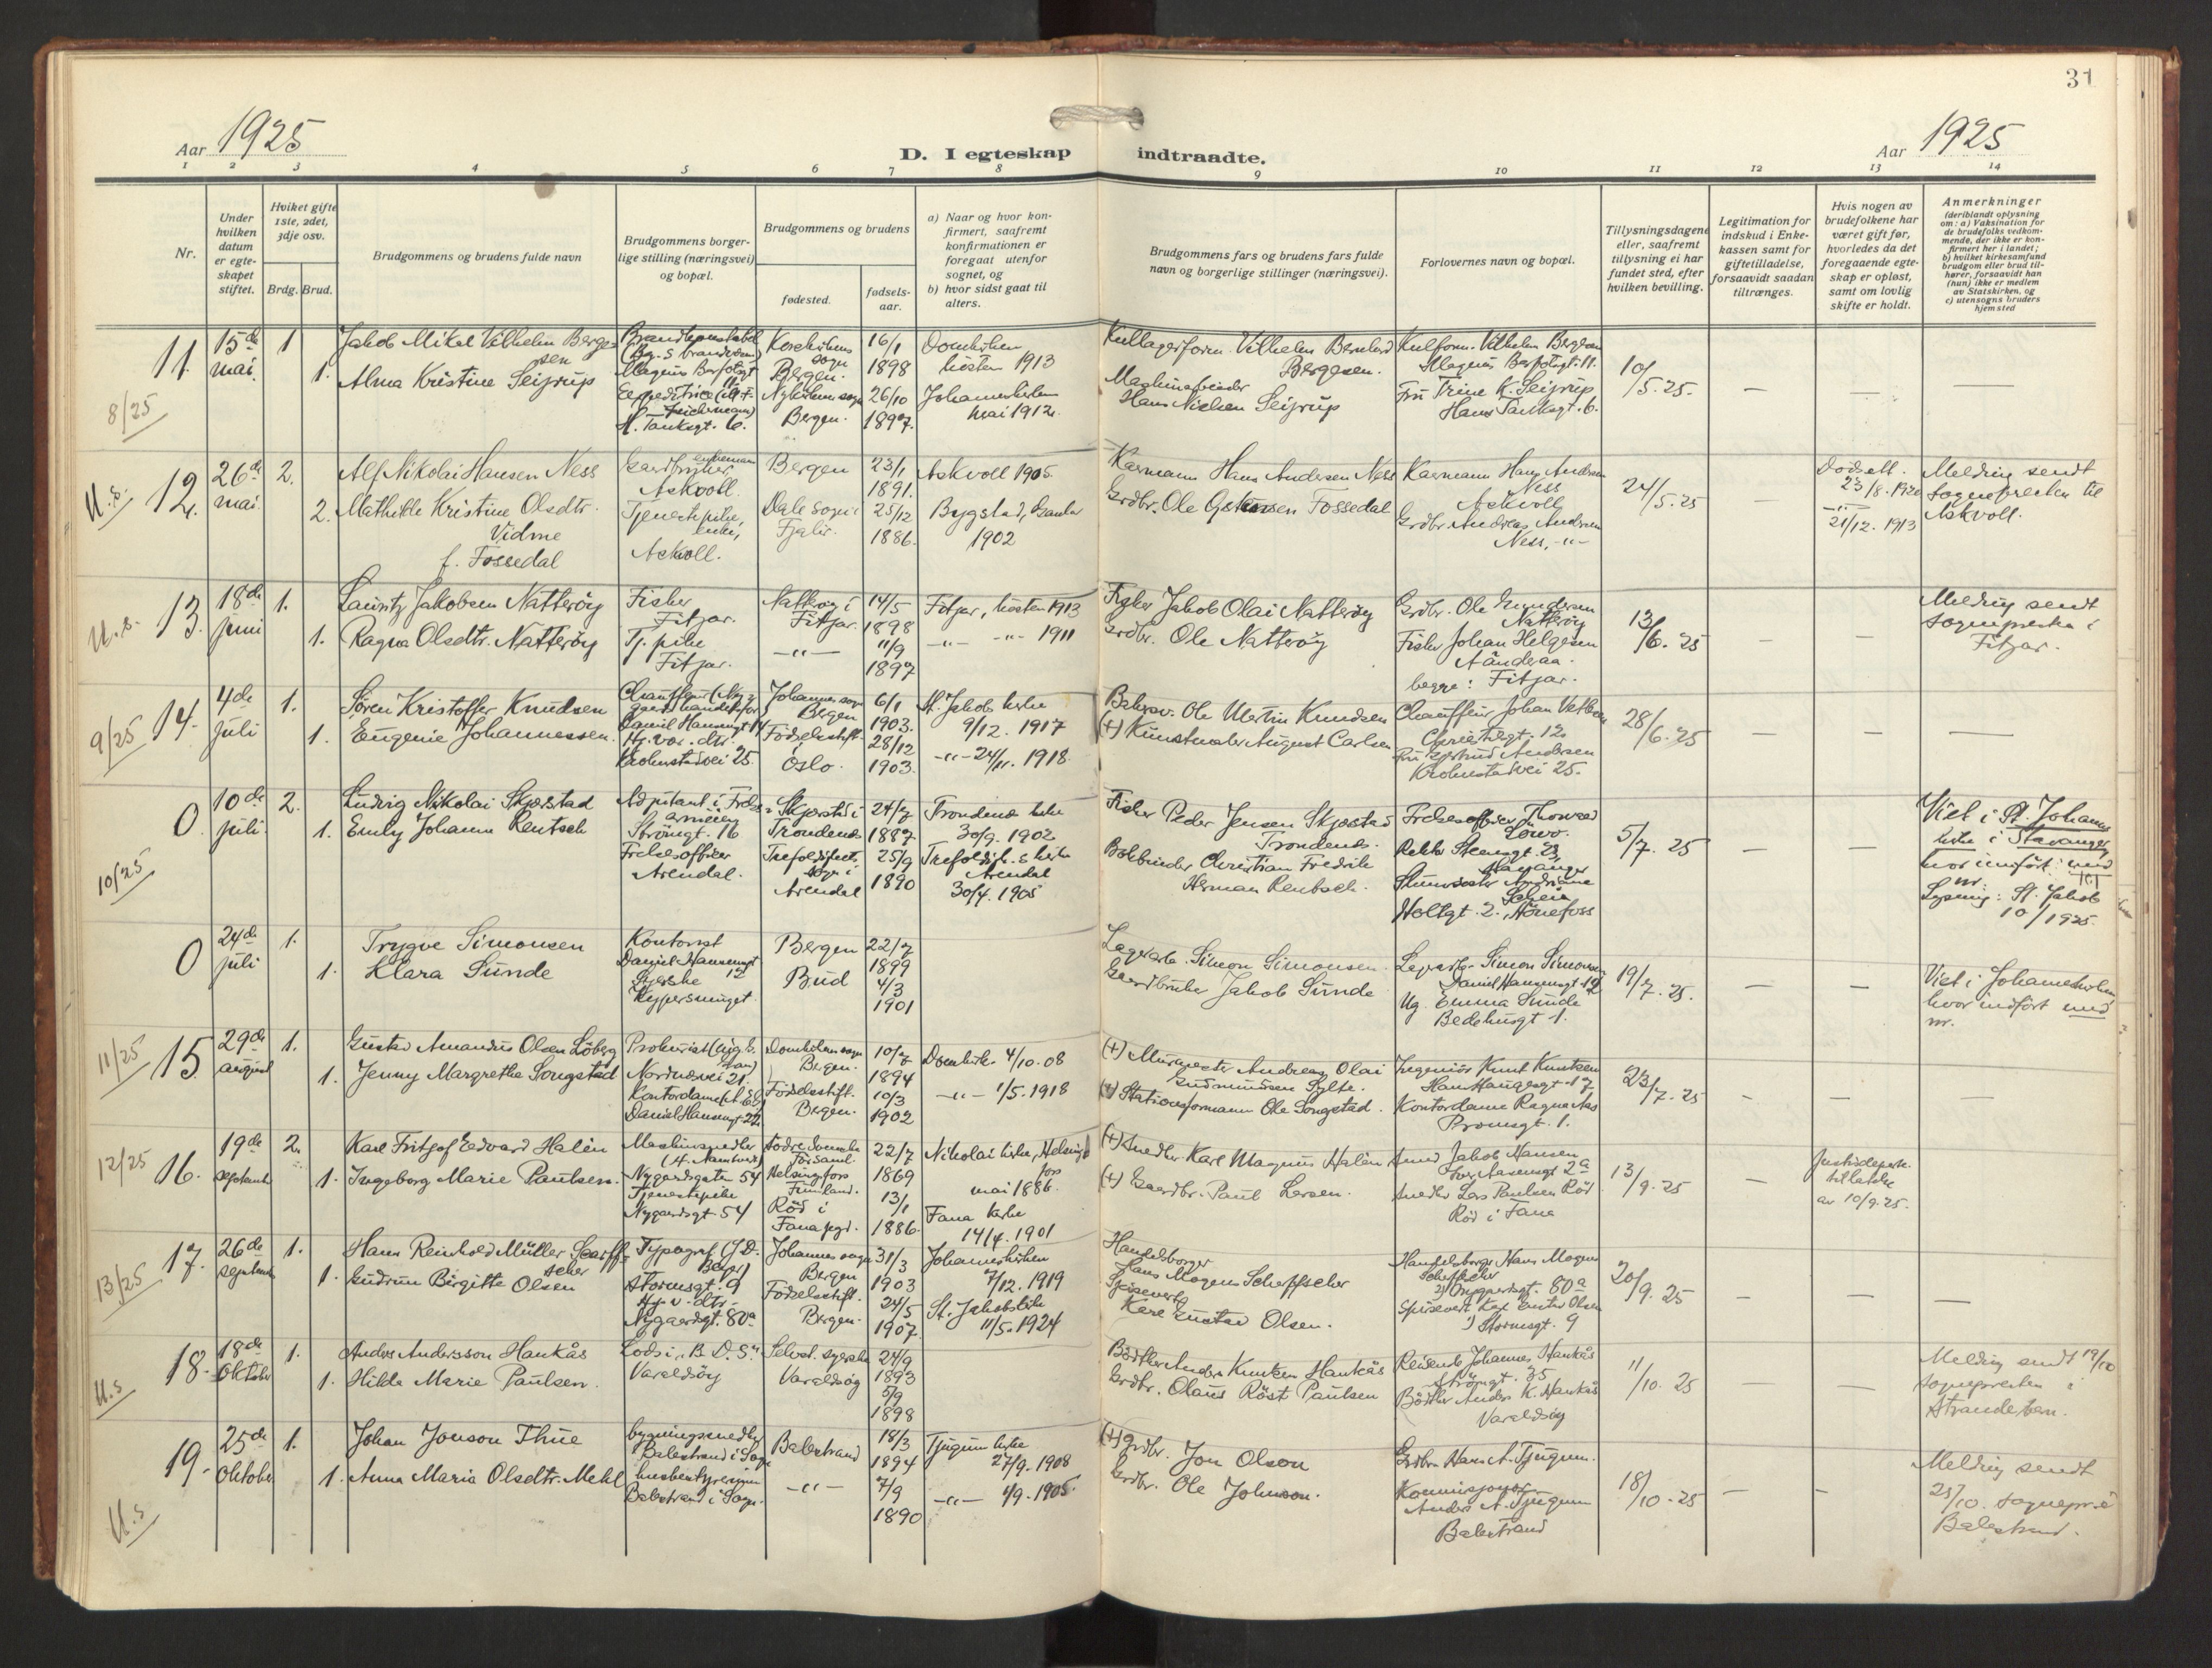 31
Aar 1925
D. I egteskap indtraadte.
Aar 1925
1 2 3 4 5 6 7 8 9 10 11 12 13 14
Nr.
Under hvilken datum er egteskapet stiftet.
Hviket gifte 1ste, 2det, 3dje osv.
Brdg. Brud.
Brudgommens og brudens fulde navn
Brudgommens borgerlige stilling (næringsvei) og bopæl.
Brudgommens og brudens
fødested.
fødselsaar.
a) Naar og hvor konfirmert, saafremt konfirmationen er foregaat utenfor sognet, og
b) hvor sidst gaat til alters.
Brudgommens fars og brudens fars fulde navn og borgerlige stillinger (næringsvei).
Forlovernes navn og bopæl.
Tillysningsdagene eller, saafremt tillysning ei har fundet sted, efter hvilken bevilling.
Legitimation for indskud i Enkekassen samt for giftetilladelse, forsaavidt saadan tiltrænges.
Hvis nogen av brudefolkene har været gift før, hvorledes da det foregaaende egteskap er opløst, samt om lovlig skifte er holdt.
Anmerkninger
(deriblandt oplysning om: a) Vaksination for de brudefolks vedkommende, der ikke er konfirmert her i landet; b) hvilket kirkesamfund brudgom eller brud tilhører, forsaavidt han (hun) ikke er medlem av Statskirken, og c) utensogns bruders hjemsted
8/25
11. 15de mai. 1
Jakob Mikal Vilhelm Bergesen
Korskirkens sogn Bergen. 16/1 1898
Domkirken høsten 1913
Kullagerform. Vilhelm Bernhard Bergesen.
Kulform. Vilhelm Bergesen
Magnus Barfotsgt. 11.
10/5. 25.
1. Alma Kristine Seijrup
H. Tanksgt. 6.
Nykirkens sogn Bergen. 26/10 1897.
Johanneskirken mai 1912.
Maskinarbeider Hans Nielsen Seijrup
Fru Trine K. Seijrup
Hans Tanksgt. 6.
U.s.
12. 26de mai. 2.
Alf Nikolai Hansen Ness
Gaardbruker, enkemann Askvoll.
Bergen 23/1 1891.
Askvoll 1905.
Kaarmann Hans Andersen Ness
Kaarmann Hans Andersen Ness Askvoll
24/5. 25
Dødsatt. 23/8. 1920
-"- 21/12. 1913
Melding sendt sognepresten til Askvoll.
2. Mathilde Kristine Olsdtr. Vidme f. Fossedal
Tjenestepike, enke, Askvoll.
Dale sogn i Fjaler. 25/12 1886.
Bygstad, Gaular 1902
Grdbr. Ole Fossedal
Grdbr. Andreas Andersen Ness, -"-
U.s.
13. 18de juni 1.
Lauritz Jakobsen Natterøy
Fisker Fitjar.
Natterøy i Fitjar. 14/5 1898
Fitjar, høsten 1913
Fisker Jakob Olai Natterøy
Grdbr. Ole Gundersen Natterøy
13/6. 25
Melding sendt sognepresten i Fitjar.
1. Ragna Olsdtr. Natterøy
Tj. pike Fitjar.
-"- 11/9 1897
-"- -"- 1911
Grdbr. Ole Natterøy
Fisker Johan Helgesen Aanderaa.
begge: Fitjar.
9/25
14. 4de juli 1.
Søren Kristoffer Knudsen
Daniel Hansensgt 14
Johannes sogn Bergen 6/1 1903.
St. Jakob kirke 9/12. 1917
Bakersv. Ole Martin Knudsen
Chauffeur Johan
Christiesgt. 12.
28/6. 25
1. Eugenie Johannessen.
Hj. vær. dtr. Krohnstadvei 25.
Fødselsstift. Oslo. 28/12 1903.
-"- 24/11. 1918.
(+) Kunstmaler August Carlsen
Fru Gertrud Andersen Krohnstadvei 25.
10/25
0. 10de juli. 2.
Ludvig Nikolai Skjæstad
Adjutant i Frelsesarmeen Strømgt. 16
Skjæstad i Trondenes 24/7 1887
Trondenes kirke 30/9. 1902
Fisker Peder Jensen Skjæstad Trondenes.
Frelsesoffiser Thorvald
Stavanger
5/7. 25
Viet i St. Johannes kirke i Stavanger, hvor innført: med nr.
Lysning: St. Jakob 10/1925
1. Emly Johanne Rentsch
Frelsesoffiser Arendal.
Arendal 25/9 1890
Trefoldigh.s kirke Arendal 30/4. 1905
Bokbinder Christian Fredrik Herman Rentsch.
Holtgt. 2. Hønefoss
0 24de juli 1.
Trygve Simonsen
Kontorist Daniel Hansensgt 12
Bergen 22/7 1899
Lagerarb. Simon Simonsen
Lagerarb. Simon Simonsen Daniel Hansensgt 12
19/7. 25.
Viet i Johanneskirken, hvor indført med nr.
1. Klara Sunde
Syerske
Bud 4/3 1901
Gaardbruker Jakob Sunde
Ug. Emma Sunde Bedehusgt 1.
11/25
15 29de august 1.
Gustav Amandus Olsen Löberg
Nordnæsvei 21.
Domkirkens sogn Bergen. 10/7 1894
Domkirk. 4/10. 08
(+) Murmester Andreas Olai Gudmundsen Sylte.
Ingeniør Knut Knutsen Hans Haugesgt. 17
23/7. 25
1. Jenny Margrethe Songstad
Daniel Hansensgt. 22.
Fødselsstift. Bergen. 10/3 1902
-"- 1/5. 1918
(+) Stationsformann Ole Songstad.
Kontordame Ragna Aas
Promsgt. 1.
12/25
16. 19de septemb. 2.
Karl Fritjof Edvard Halén
Maskinsnedker
Nygaardsgaten 54
Södre svenska församl. Helsingfors Finnland. 22/7 1869
Nikolai kirke, Helsingfors mai 1886.
(+) Snedker Karl Magnus Halén
Smed Jakob Hansen Ivar Aasensgt 2a
13/9. 25
Justisdepart. tillatelse av 10/9. 25.
1. Ingeborg Marie Paulsen.
Tjenestepike Nygaardsgt. 54
Röd i Fana pgd. 13/1 1886.
Fana kirke 14/4. 1901
(+) Gaardbr. Paul Larsen.
Snedker Lars Paulsen Röd
Röd i Fana
13/25
17. 26de september 1.
Hans Reinhold Müller Scheffscher
Typograf (J.D. Beyer) Stormsgt. 9
Johannes sogn Bergen 31/3 1903
Johanneskirken 7/12. 1919
Handelsborger Hans Mogens Scheffscher
Handelsborger Hans Mogens Scheffscher
Nygaardsgt. 80a
20/9. 25
1. Gudrun Birgitte Olsen
Hj. v. dtr. Nygaardsgt. 80a
Fødselsstift. Bergen. 24/5 1907.
St. Jakobskirke 11/5. 1924
Spisevert Karl Gustav Olsen.
Spisevert Karl Gustav Olsen Stormsgt. 9
U.s
18. 18de Oktober 1.
Anders Andersson Haukås
Lods i "B.D.S." Varaldsøy
Selvst. syerske Varaldsøy 24/9 1893
Bødker Anders Knutsen Haukås
Reisende Johannes Haukås Strømgt. 35
11/10. 25
Melding sendt 19/10 sognepresten i Strandebarm.
1. Hilda Marie Paulsen.
5/9 1898
Grdbr. Olaus Röst Paulsen
Bødker Anders K. Haukås Varaldsøy
U.s
19. 25de oktober 1.
Johan Jonson Thue
bygningssnedker Balestrand i Sogn
Balestrand 18/3 1894
Tjugum kirke 27/9. 1908
(+) Grdbr. Jon Olson
Grdbr. Hans A. Tjugum.
18/10. 25
Melding sendt 25/10. sognepr. i Balestrand.
1. Anna Maria Olsdtr. Mehl
husbestyrerinne Balestrand i Sogn.
-"- 7/9 1890
-"- 4/9. 1905.
Grdbr. Ole Johnson.
Kommisjonær Anders A. Tjugum Balestrand